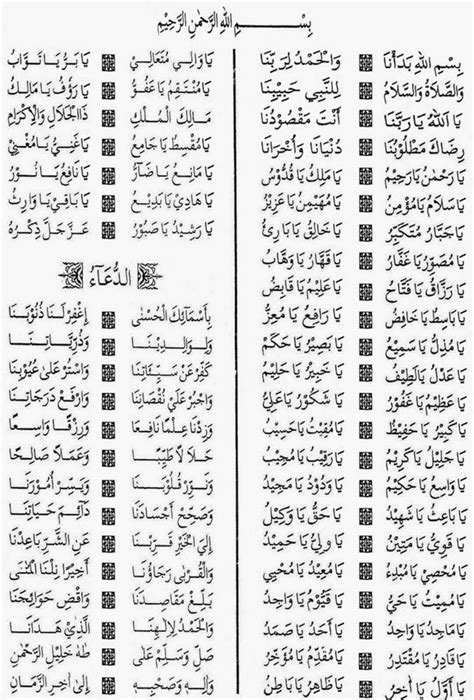 بِسْــــــمِ اللهِ الرَّحْمٰنِ الرَّحِيْمِ
بِسْمِ اللهِ بَدَأْنَا وَالْحَمْدُ لِرَبِّنَا
وَالصَّلَاةُ وَالسَّلَامُ لِلنَّبِيِّ حَبِيْبِنَا
يَا اَللهُ يَا رَبَّنَا أَنْتَ مَقْصُوْدُنَا
رِضَاكَ مَطْلُوْبُنَا دُنْيَانَا وَأُخْرَانَا
يَا رَحْمٰنُ يَا رَحِيْمُ يَا مَلِكُ يَا قُدُّوْسُ
يَا سَلَامُ يَا مُؤْمِنُ يَا مُهَيْمِنُ يَا عَزِيْزُ
يَا جَبَّارُ مُتَكَبِّرُ يَا خَالِقُ يَا بَارِئُ
يَا مُصَوِّرُ يَا غَفَّارُ يَا قَهَّارُ يَا وَهَّابُ
يَا رَزَّاقُ يَا فَتَّاحُ يَا عَلِيْمُ يَا قَابِضُ
يَا بَاسِطُ يَا خَافِضُ يَا رَافِعُ يَا مُعِزُّ
يَا مُذِلُّ يَا سَمِيْعُ يَا بَصِيْرُ يَا حَكَمُ
يَا عَدْلُ يَا لَطِيْفُ يَا خَبِيْرُ يَا حَلِيْمُ
يَا عَظِيْمُ يَا غَفُوْرُ يَا شَكُوْرُ يَا عَلِيُّ
يَا كَبِيْرُ يَا حَفِيْظُ يَا مُقِيْتُ يَا حَسِيْبُ
يَا جَلِيْلُ يَا كَرِيْمُ يَا رَقِيْبُ يَا مُجِيْبُ
يَا وَاسِعُ يَا حَكِيْمُ يَا وَدُوْدُ يَا مَجِيْدُ
يَا بَاعِثُ يَا شَهِيْدُ يَا حَقُّ يَا وَكِيْلُ
يَا قَوِيُّ يَا مَتِيْنُ يَا وَلِيُّ يَا حَمِيْدُ
يَا مُحْصِيْ يَا مُبْدِءُ يَا مُعِيْدُ يَا مُحْيِيْ
يَا مُمِيْتُ يَا حَيُّ يَا قَيُّوْمُ يَا وَاجِدُ
يَا مَاجِدُ يَا وَاحِدُ يَا أَحَدُ يَا صَمَدُ
يَا قَادِرُ يَا مُقْتَدِرُ يَا مُقَدِّمُ يَا مُؤَخِّرُ
يَا أَوَّلُ يَا آخِرُ
يَا وَالِيْ مُتَعَالِيْ يَا بَرُّ يَا تَوَّابُ
يَا مُنْتَقِمُ يَا عَفُوُّ يَا رَؤُفُ يَا مَالِكُ
مَالِكَ الْمُلْكِ ذَا الْجَلَالِ وَالْإِكْرَامِ
يَا مُقْسِطُ يَا جَامِعُ يَا غَنِيُّ يَا مُغْنِيْ
يَا مَانِعُ يَا ضَآرُّ يَا نَافِعُ يَا نُوْرُ
يَا هَادِيْ يَا بَدِيْعُ يَا بَاقِيْ يَا وَارِثُ
يَا رَشِيْدُ يَا صَبُوْرُ عَزَّ جَلَّ ذِكْرُهُ
الدُّعَآءُ
بِأَسْمَائِكَ الْحُسْنٰى إِغْفِرْ لَنَا ذُنُوْبَنَا
وَلِوَالِدِيْنَا وَذُرِّيَّاتِنَا
كَفِّرْ عَنْ سَيِّئَاتِنَا وَاسْتُرْ عَلٰى عُيُوْبِنَا
وَاجْبُرْ عَلٰى نُقْصَانِنَا وَارْفَعْ دَرَجَاتِنَا
وَزِدْنَا عِلْمًا نَافِعًا وَرِزْقًا وَاسِعًا
حَلَالًا طَيِّبًا وَعَمَلًا صَالِحًا
وَنَوِّرْ قُلُوْبَنَا وَيَسِّرْ أُمُوْرَنَا
وَصَحِّحْ أَجْسَادَنَا دَآئِمَ حَيَاتِنَا
إِلَى الْخَيْرِ قَرِّبْنَا عَنِ الشَّرِّ بَاعِدْنَا
وَالْقُرْبٰى رَجَاؤُنَا أَخِيْرًا نِلْنَا الْمُنٰى
بَلِّغْ مَقَاصِدَنَا وَاقْضِ حَوَائِجَنَا
وَالْحَمْدُ لِإِلٰهِنَا الَّذِيْ هَدَانَا
صَلِّ وَسَلِّمْ عَلٰى طٰهٰ خَلِيْلِ الرَّحْمٰنِ
وَآلِهِ وَصَحْبِهِ إِلٰى آخِرِ الزَّمَانِ